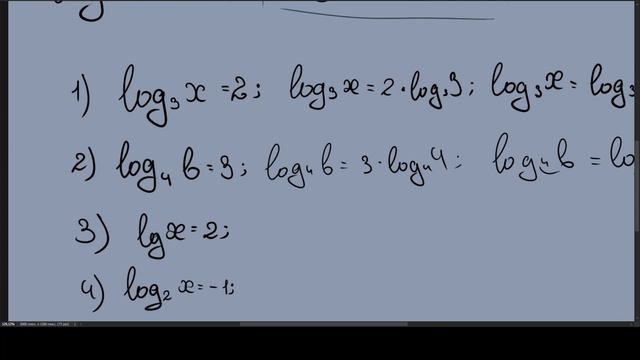 1) log₃x = 2; log₃x = 2·log₃3; log₃x = log₃
2) log₄b = 3; log₄b = 3·log₄4; log₄b = lo
3) lg x = 2;
4) log₂x = -1;